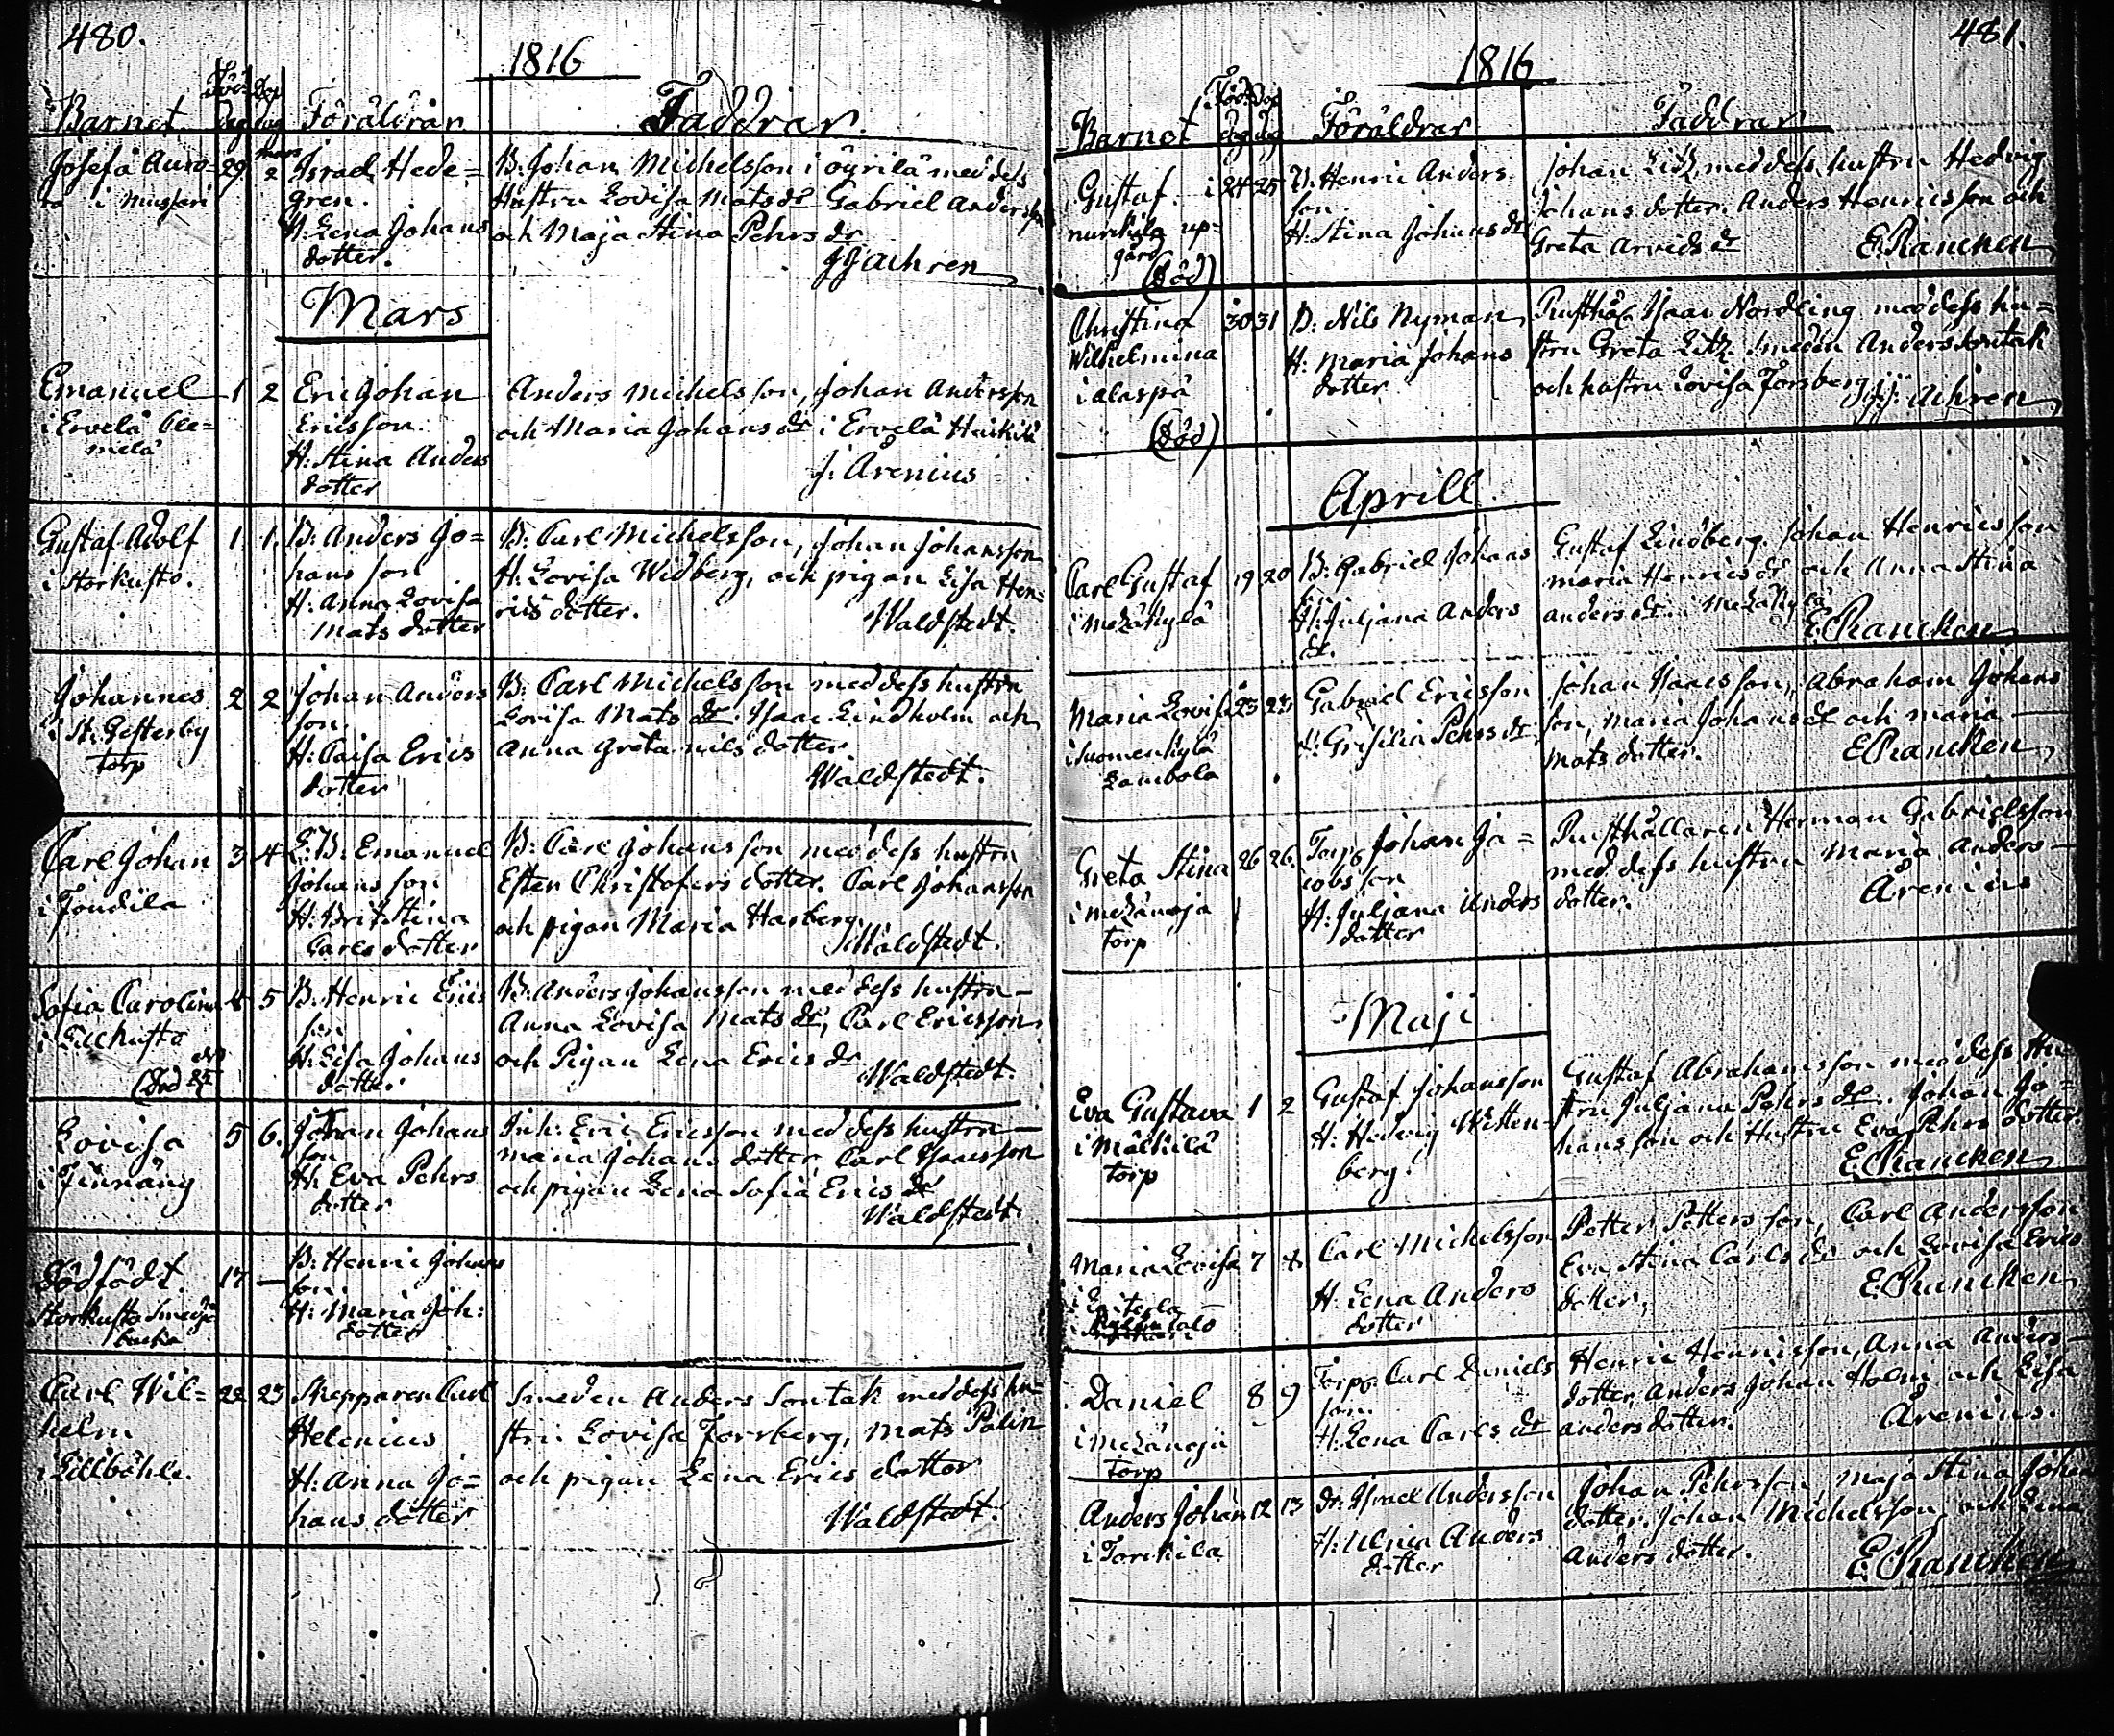 480.
1816
Barnet
Född dag
Dop dag
Föräldrar
Faddrar.
Josefa Auro=
ra i
29
Mars
2
Israel Hede=
gren.
H: Lena Johans
dotter.
B: Johan Michelsson i ögrilä med dess
Hustru Lovisa Mats dr Gabriel Andersson
och Maja Stina Pehrs dr
Mars
Emanuel
i Ervelä
1
2
Eric Johan
Ericsson.
H: Stina Anders
dotter
Anders Michelsson, Johan Andersson
och Maria Johans dr i Ervelä Heikilä
J: Arenius
Gustaf Adolf
i Storkusto.
1.
1.
B: Anders Jo=
hans son
H: Anna Lovisa
Mats dotter
B: Carl Michelsson, Johan Johansson
H: Lovisa Widberg, och pigan Lisa Hen=
rics dotter.
Waldstedt.
Johannes
i St: Gesterby
torp
2
2
Johan Anders
son.
H: Caisa Erics
dotter
B: Carl Michelsson med dess hustru
Lovisa Mats dr. Isaac Lindholm och
Anna Greta Nils dotter
Waldstedt.
Carl Johan
i Jondila
3
4
B: Emanuel
Johans son
H: Brit Stina
Carls dotter
B: Carl Johans son med dess hustru
Ester Christofers dotter. Carl Johansson
och pigan Maria Hasberg.
Waldstedt.
Sofia Carolina
i Lillkusto
(Död
4
5
B: Henric Erics
son
H: Lisa Johans
dotter.
B: Anders Johansson med dess hustru
Anna Lovisa Mats dr, Carl Ericsson
och Pigan Lena Erics dr
Waldstedt.
Lovisa
i Finnäng
5
6.
Johan Johans
son
H: Eva Pehrs
dotter
Inh: Eric Ericsson med dess hustru
Maria Johans dotter, Carl Isaacsson
och pigan Lena Sofia Erics dr
Waldstedt
Dödfödt
Storkusto Smedje
backa
17
—
B: Henric Johans
son.
H: Maria Joh:
dotter
Carl Wil=
helm
i Lillböhle.
22
23
Skepparen Carl
Helenius
H: Anna Jo=
hans dotter
Smeden Anders Sontak med dess hu=
stru Lovisa Forsberg, Mats Palin
och pigan Lena Erics dotter
Waldstedt.
481.
1816
Barnet
Född dag
Dop dag
Föräldrar
Faddrar
Gustaf i
up=
gård
(Död)
24
25
B: Henric Anders
son.
H: Stina Johans dr
Johan Litz, med dess hustru Hedvig
Johans dotter. Anders Henricsson och
Greta Arvids dr
E: Rancken
Christina
Wilhelmina
i alaspä
(Död)
30
31
B: Nils Nyman
H: Maria Johans
dotter
Isaac Nordling med dess hu=
stru Greta Litz. Smeden Anders Sontak
och hustru Lovisa Forsberg
Aprill
Carl Gustaf
i Mekäkylä
19
20
B: Gabriel Johans
H: Juljana Anders
dr.
Gustaf Lindberg. Johan Henricsson
Maria Henrics dr och Anna Stina
Anders dr i Mekäkylä
E: Rancken
Maria Lovisa
i Suomenkylä
23
23
Gabriel Ericsson
H: Pehrs dr
Johan Isaacsson, Abraham Johans
son, Maria Johans dr och Maria
Mats dotter.
E: Rancken
Greta Stina
torp
26
26.
Torp. Johan Ja=
cobs son
H: Juljana Anders
dotter
Rusthållaren Herman Gabrielsson
med dess hustru Maria Anders
dotter.
Arenius
Maji
Eva Gustava
i Mälkilä
torp
1
2
Gustaf Johansson
H: Hedvig Witten=
berg.
Gustaf Abrahamsson med dess Hu=
stru Juljana Pehrs dr. Johan Jo=
hansson och Hustru Eva Pehrs dotter.
E: Rancken
Maria Lovisa
7
8
Carl Michelsson
H: Lena Anders
dotter
Petter Petters son, Carl Andersson
Eva Stina Carls dr och Lovisa Erics
dotter,
E: Rancken
Daniel
torp
8
9
Torp. Carl Daniels
son.
H: Lena Carls dr
Henric Henricsson, Anna Anders
dotter, Anders Johan Holm och Lisa
Anders dotter.
Arenius.
Anders Johan
i Torikila
12
13
dr: Israel Andersson
H: Ulrica Anders
dotter
Johan Pehrsson, Maja Stina Johans
dotter. Johan Michelsson, och Lena
Anders dotter.
E: Rancken